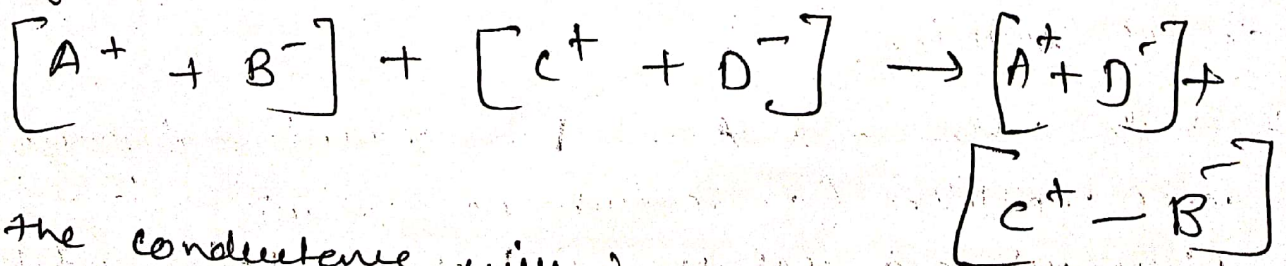 [A⁺ + B⁻] + [C⁺ + D⁻] → [A⁺ + D⁻] +
[C⁺ - B⁻]
the conductence